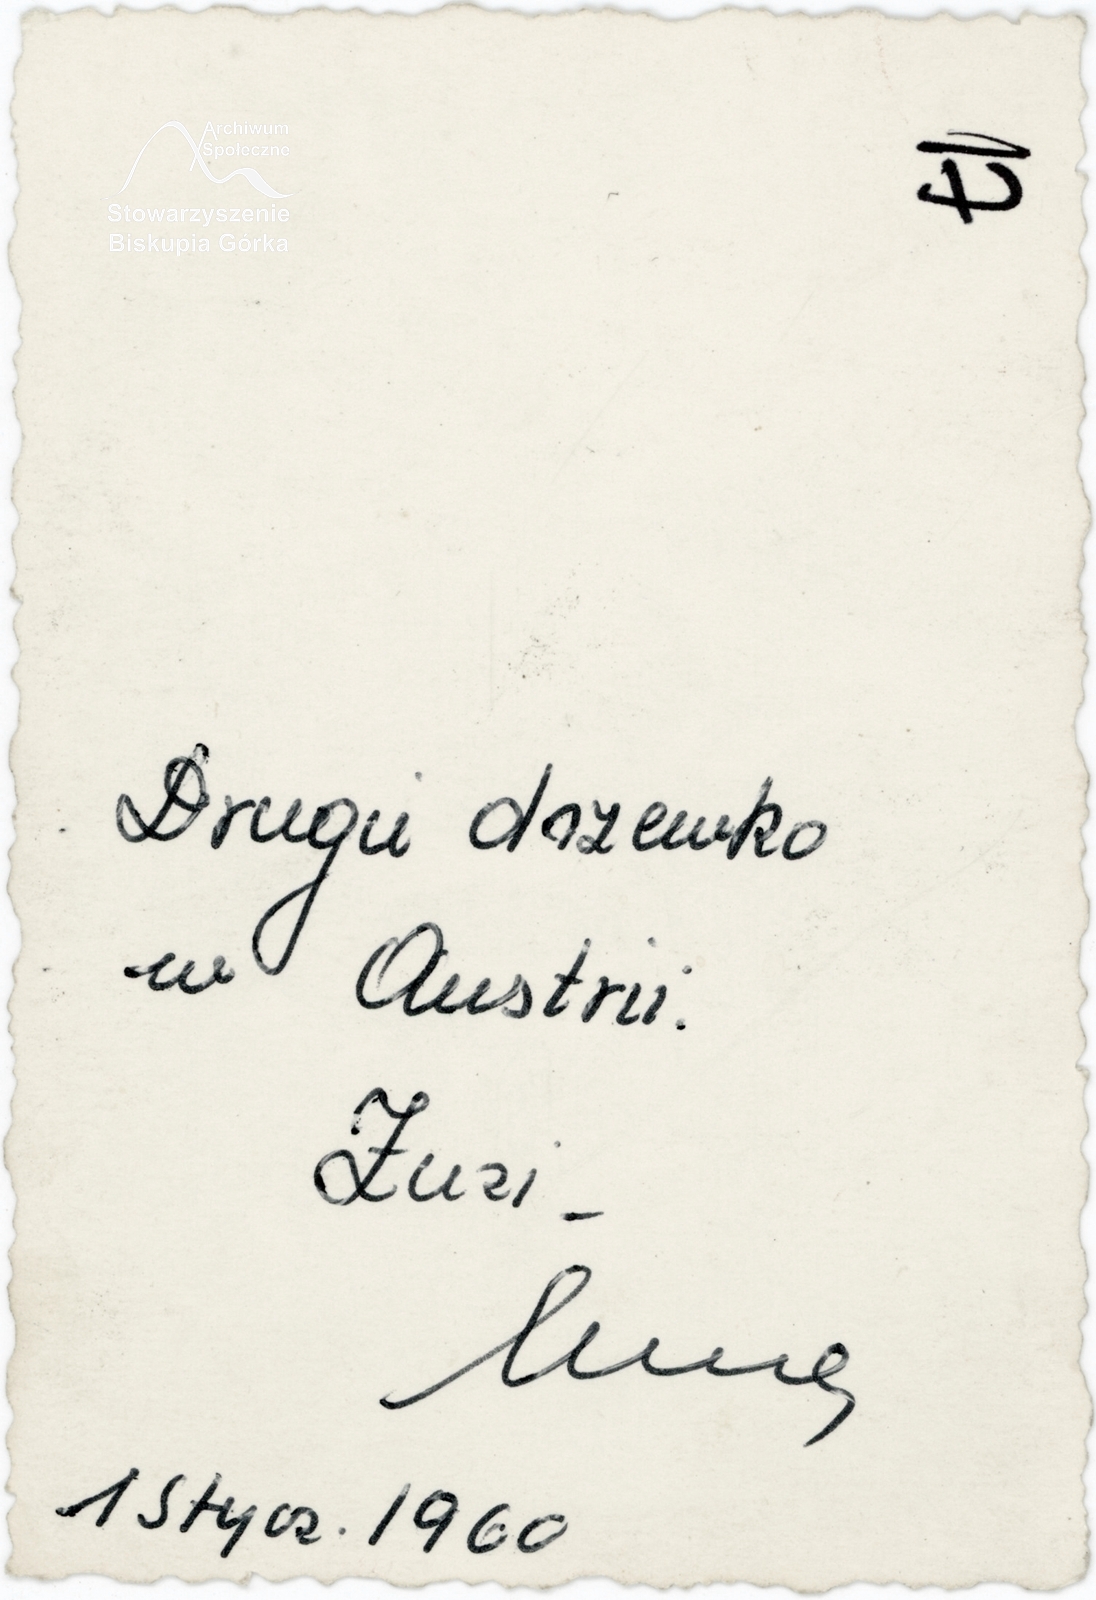 Archiwum
Społeczne
Stowarzyszenie
Biskupia Górka
Drugii drzewko
w Austrii.
Zuzi -
1 Stycz. 1960